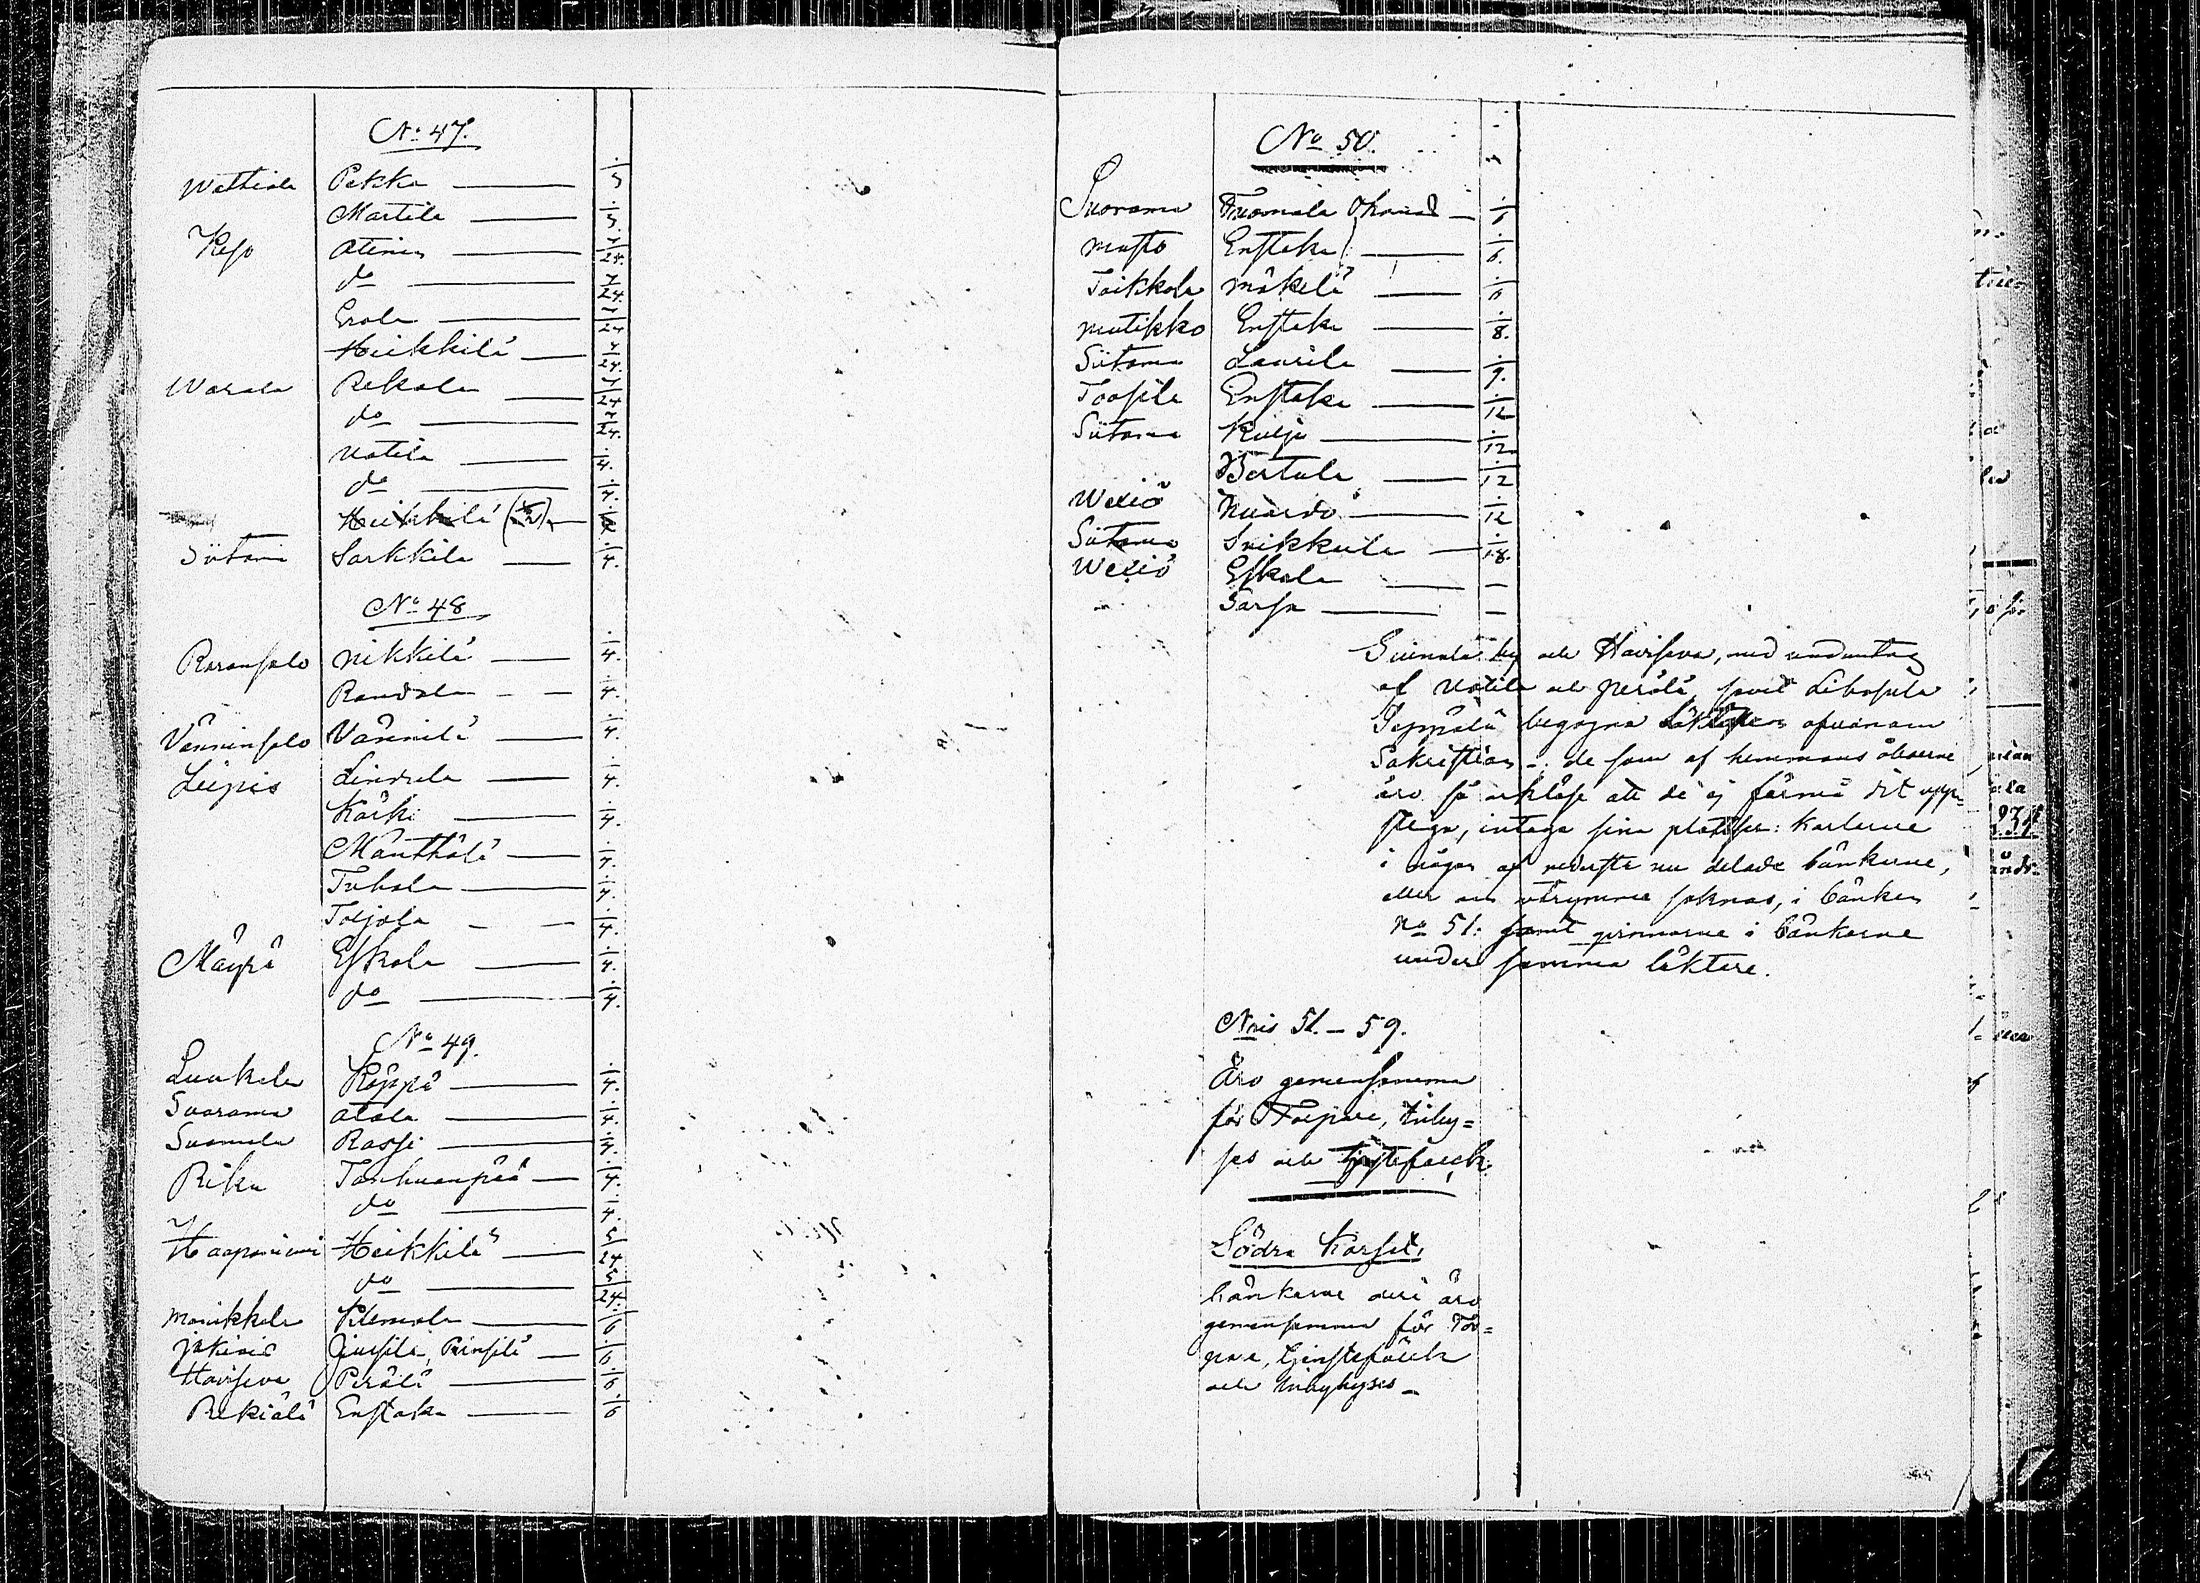 No 47.
Wattiala Pekka — 1/3
Martila — 1/3.
Keso Atinen — 7/24.
do — 7/24.
Erola — 7/24
Heikkilä — 7/24.
Warala Rekola — 7/24
do — 7/24.
Uotila — 1/4.
do — 1/4.
Heikkilä
Siitama Sarkkila — 1/4.
No 48
Raransalo Nikkilä — 1/4.
Randala — 1/4.
Vänninsalo Vännilä — 1/4.
Liipis Lindula — 1/4.
Kärki — 1/4.
Mänttälä — 1/4.
Tuhola — 1/4.
Toljola — 1/4.
Mäyrä Eskola — 1/4.
do — 1/4.
No 49.
Luukela Köppä — 1/4.
Suorama Atola — 1/4.
Suomela Rassi — 1/4.
Riku Tanhuanpää — 1/4.
do — 1/4.
Haapaniemi Heikkilä — 5/24
do — 5/24.
Monikkala Klemola — 1/6
Jokinie Jussila, Prinsilä — 1/6.
Haviseva Perälä — 1/6
Rekiälä Enstaka — 1/6
No 50.
Suorama Tuomala — 1/6
Musto Enstaka — 1/6.
Toikkola Mäkelä — 1/6
Mutikko Enstaka — 1/8.
Siitama Laurila — 1/9.
Toosila Enstaka — 1/12
Siitama Kulju — 1/12
Bertula — 1/12
Wexiö — 1/12
Siitama Snikkula — 1/18.
Wexiö Eskola — —
Sarsa — —
by och Havisova, med undantag
af Uotila och Perälä, samt
Seppälä begagna läktaren ofvanom
Sakristian: de som af hemmans åboerne
äro så orklöse att de ej förmå dit upp=
stiga, intaga sina platser: karlarne
i någon af nedersta nu delade bänkarne,
eller om utrymme saknas, i bänken
No 51: samt qvinnorna i bänkarne
under samma läktare.
Nris 51. – 59.
Äro gemensamma
för Torpare, Inhy=
ses och tjenstefolck.
Södra Korset,
bänkarne deri äro
gemensamma för Tor=
pare, tjenstefolck
och Inhyses